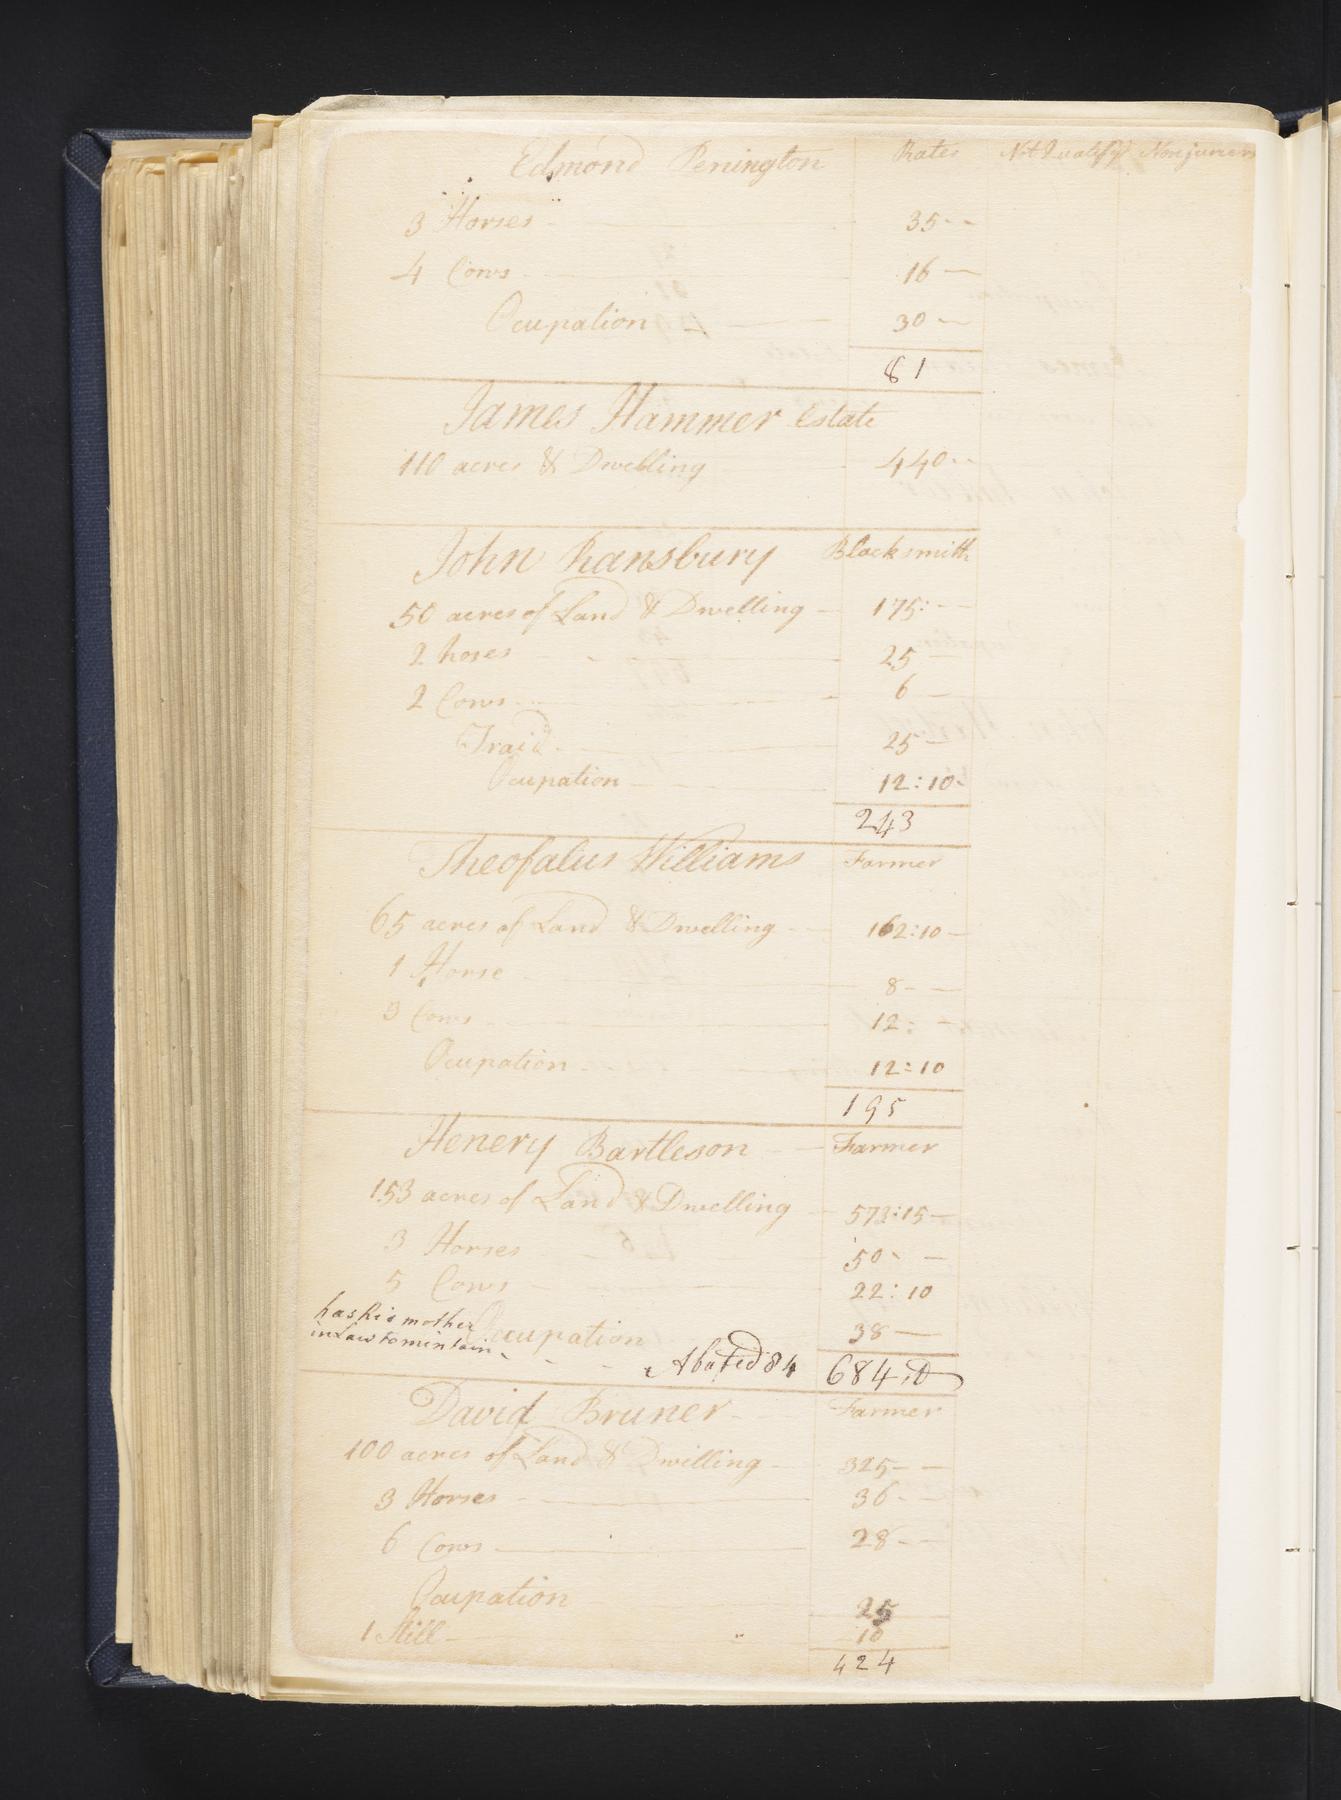 Edmond Penington Rates Not Qualify'd Nonjurers
3 Horses 35 --
4 Cows 16 —
Ocupation 30 —
81
James Hammer Estate
110 acres & Dwelling 440 --
John Ransbury Blacksmith
50 acres of Land & Dwelling 175: --
2 hoses 25 —
2 Cows 6 —
Traid 25 —
Ocupation 12:10
243
Theofalus Williams Farmer
65 acres of Land & Dwelling 162:10 —
1 Horse 8 --
3 Cows 12: -
Ocupation 12:10
195
Henery Bartleson Farmer
153 acres of Land & Dwelling 573:15 —
3 Horses 50 -
5 Cows 22:10
has his mother Ocupation 38 —
in Law to mintain - - - Abated 84 684
David Bruner Farmer
100 acres of Land & Dwilling 325 --
3 Horses 36 --
6 Cows 28 --
Ocupation 25
1 Still 10
424